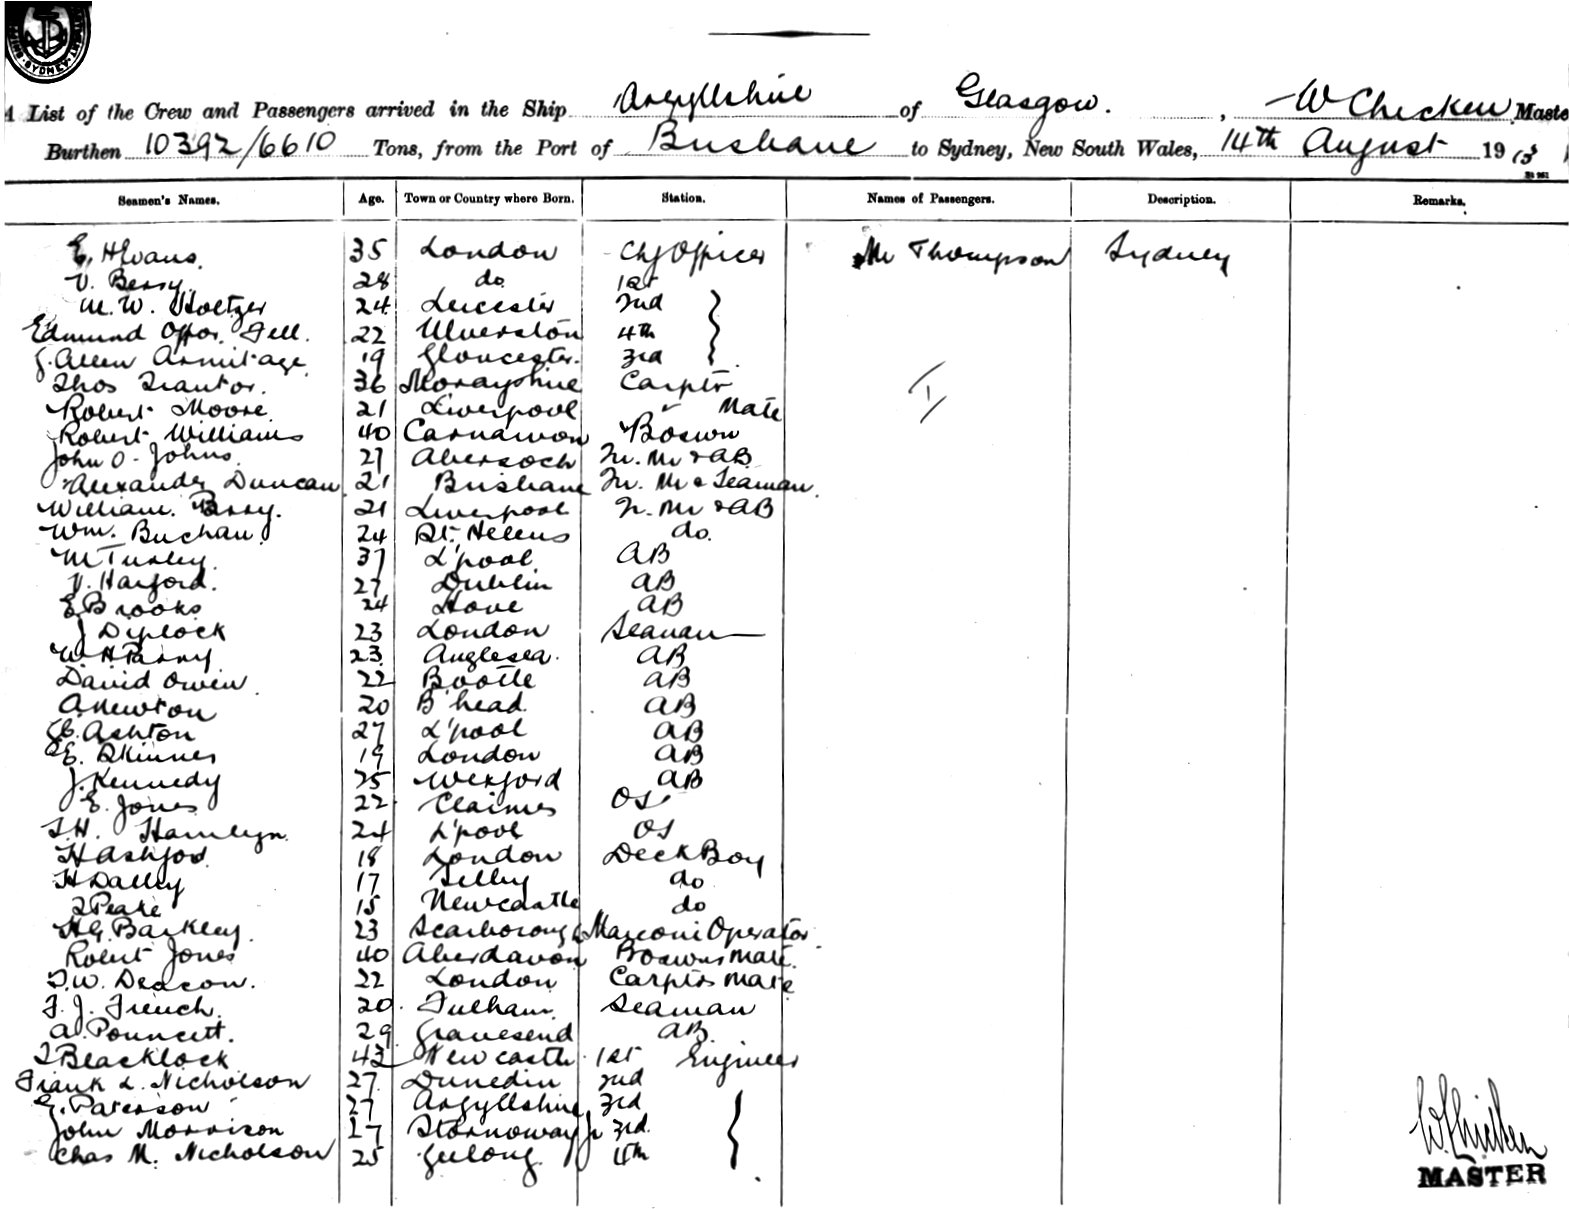 SYDNEY
A List of the Crew and Passengers arrived in the Ship Argyllshire of Glasgow. , W Chicken Maste
Burthen 10392/6610 Tons, from the Port of Brisbane to Sydney, New South Wales, 14th August 1913
Seamen's Names. Age. Town or Country where Born. Station. Names of Passengers. Description. Remarks.
E. H Evans. 35 London Chf Officer Mr Thompson Sydney
V. Berry. 28 do. 1st
M. W. Holtzer 24 Leicester 2nd
Edmund Fell. 22 Ulverston 4th
G. Allen Armitage 19 Gloucester. 3rd
Thos Trantor. 36 Morayshire Carptr
Robert Moore. 21 Liverpool " Mate
Robert Williams 40 Carnarvon Boswn
John O. Johns. 27 Abersoch Tr. Mr & AB
Alexander Duncan 21 Brisbane Tr. Mr & Seaman.
William. Berry. 21 Liverpool Tr. Mr & AB
Wm. Buchan. 24 St. Helens do.
M Turley. 37 L'pool. AB
V. Harford. 27 Dublin AB
E Brooks 24 Hove AB
J Diplock 23 London Seaman
W. H Parry 23 Anglesea. AB
David Owen 22 Bootle AB
A. Newton 20 B'head. AB
E. Ashton 27 L'pool AB
E. Skinner 19 London AB
J. Kennedy 25 Wexford AB
E. Jones 22 Claines OS
T. H. Hamlyn. 24 L'pool OS
H Ashford. 18 London Deck Boy
H Dalley 17 Selby do
Peake 15 Newcastle do
H G. Barkley. 23 Scarborough Marconi Operator
Robert Jones 40 Aberdavon Boswns Mate.
T. W. Deacon. 22 London Carptrs Mate
F. J. French. 20. Fulham. Seaman
A. Pouncett. 29 Gravesend AB.
T Blacklock 42 Newcastle 1st Engineer
Frank L. Nicholson 27 Dunedin 2nd
G. Paterson 27 Argyllshire 3rd
John Morrison 27 Stornoway Jr 3rd.
Chas M. Nicholson 25 Geelong. 4th
W Chicken
MASTER